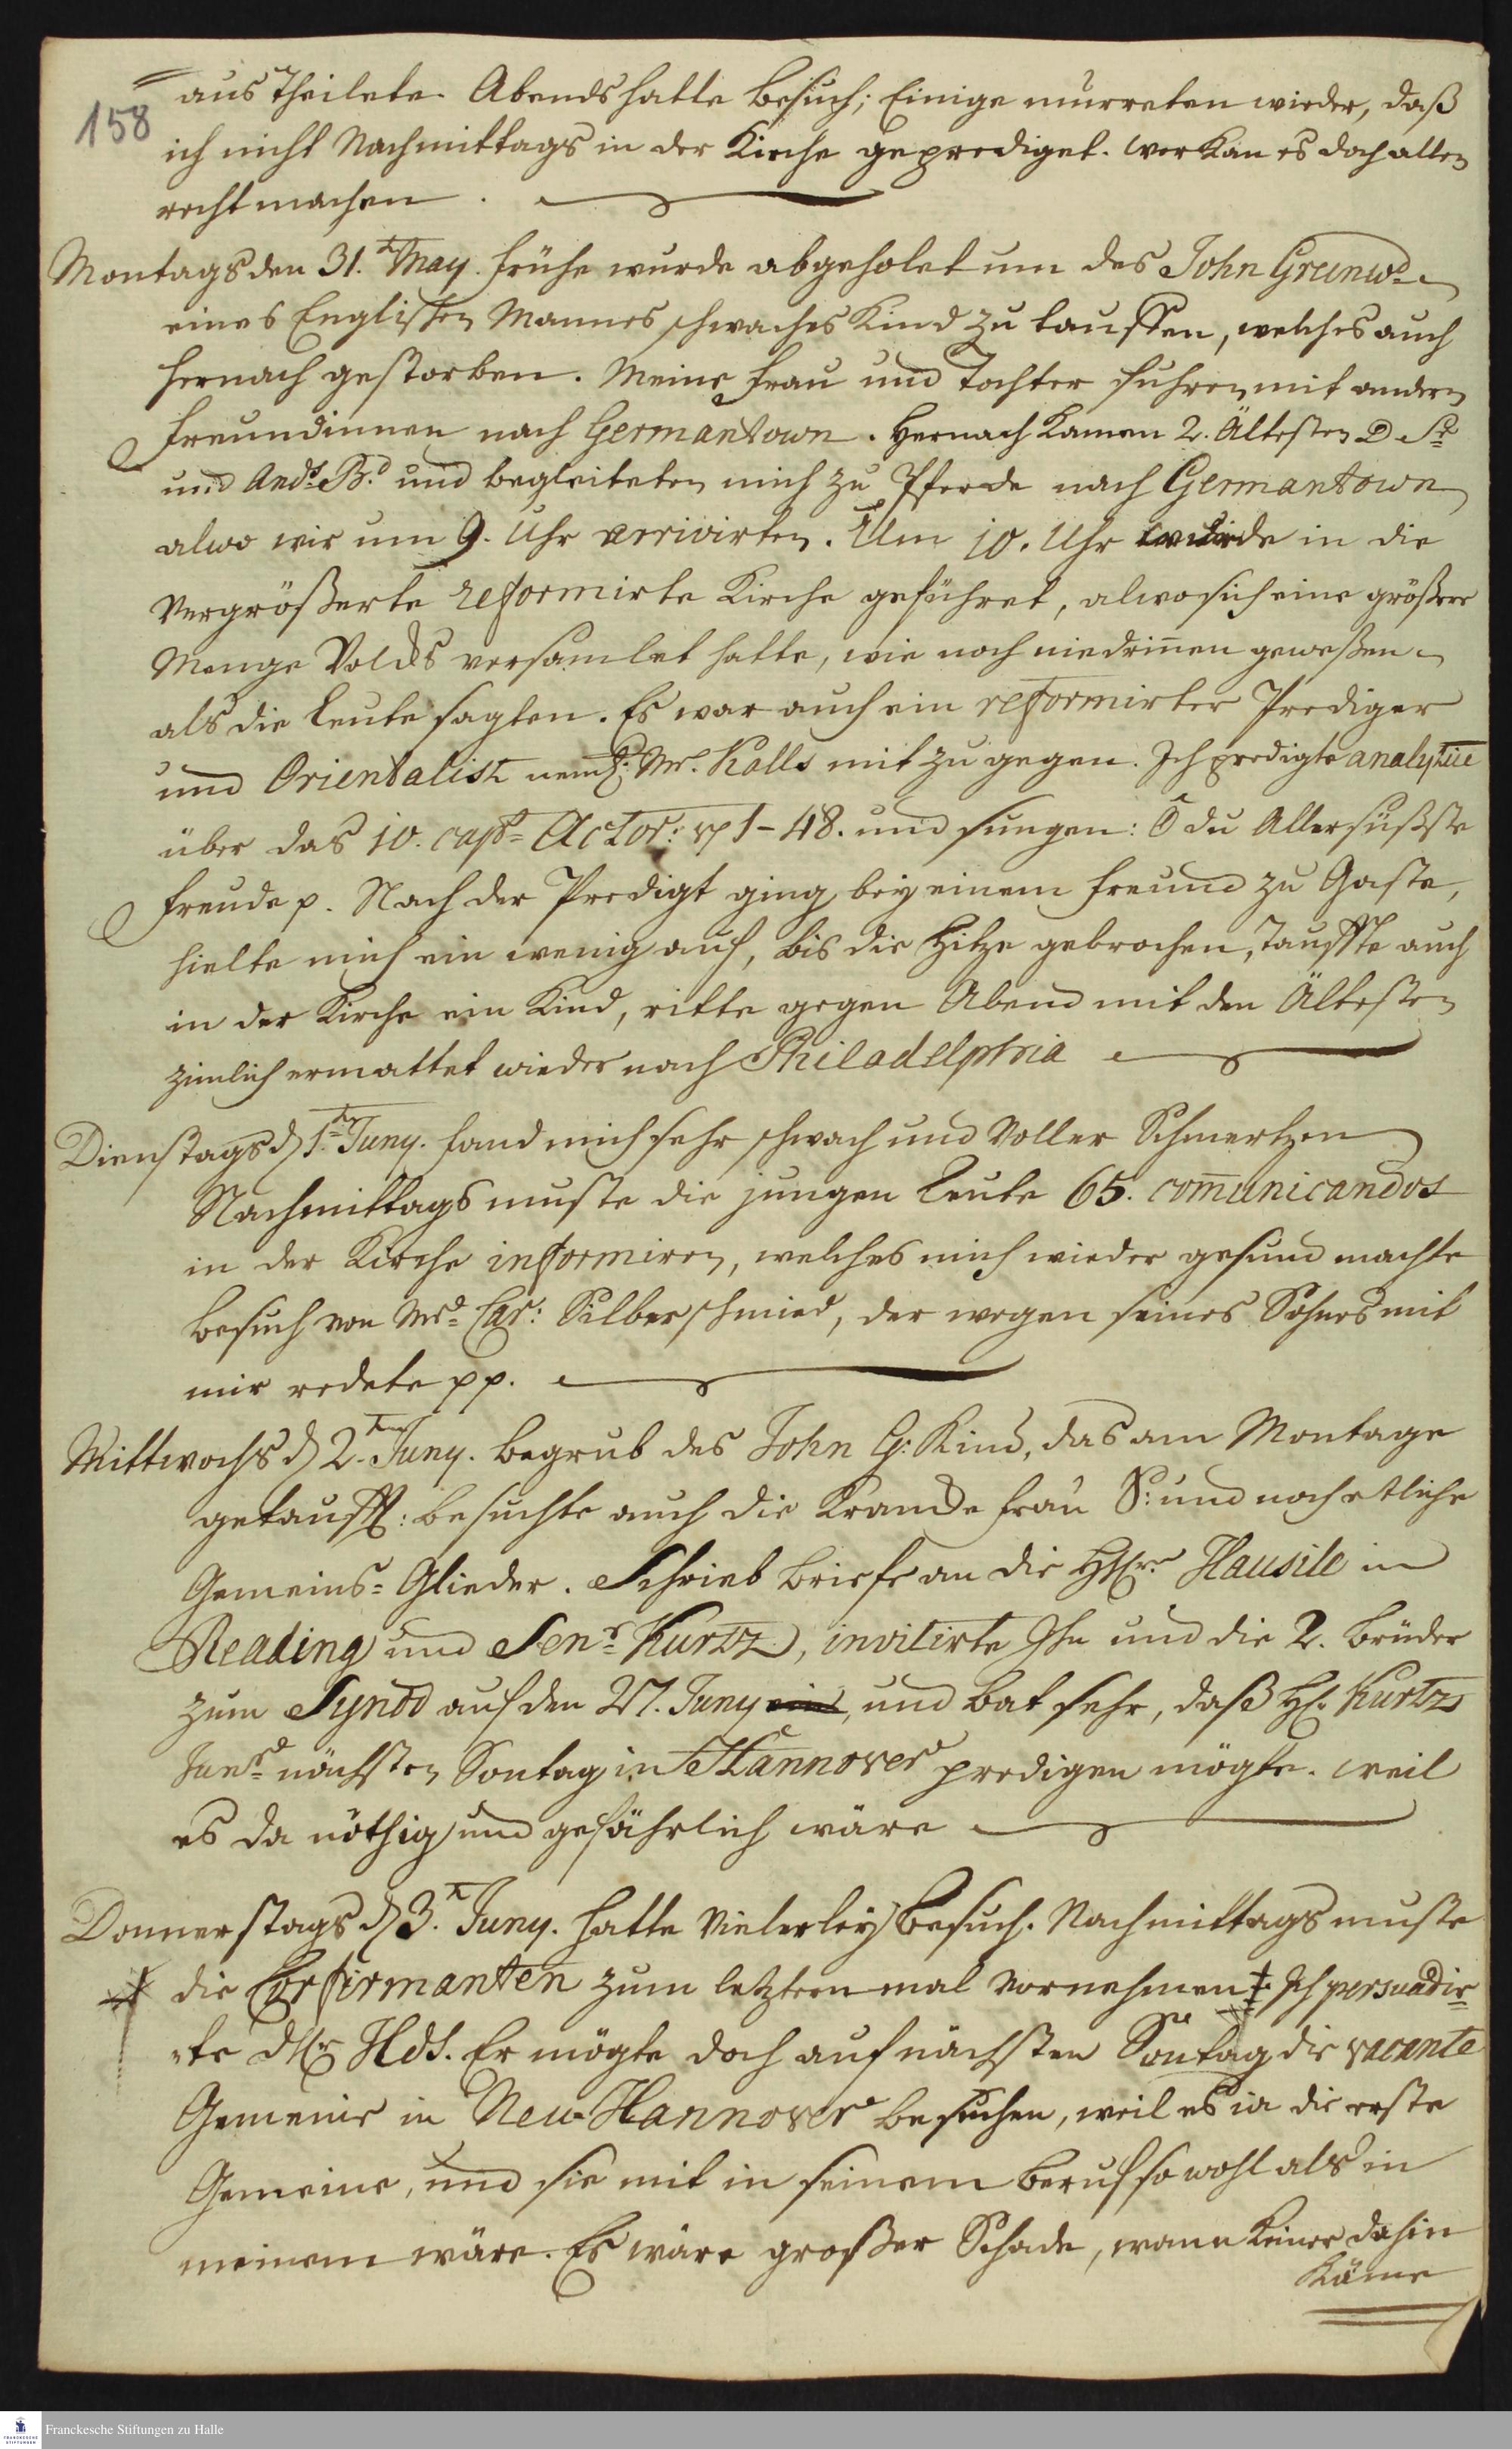 158
austheilete. Abends hatte Besuch; Einige murreten wieder, daß
ich nicht Nachmittags in der Kirche geprediget. wer Kan es doch allen
recht machen.
Montags den 31.ten May. frühe wurde abgeholet um des John Greenwd
eines Englischen Mannes schwaches Kind zu tauffen, welches auch
hernach gestorben. Meine Frau und Tochter fuhren mit andern
Freundinnen nach Germantown. Hernach Kamen 2. Ältesten D Sr
und Ands. B.d und begleiteten mich zu Pferde nach Germantown
alwo wir um 9. Uhr arrivirten. Um 10. Uhr wurde in die
Vergrößerte reformirte Kirche geführet, alwo sich eine größere
Menge Volcks versamlet hatte, wie noch nie drinnen geweßen
als die Leute sagten. Es war auch ein reformirter Prediger
und Orientalist neml: Mr. Kalls mit zugegen. Ich predigte analytice
über das 10. cap. Actor: v 1-48. und sungen: O du Allersüßste
Freude p. Nach der Predigt ging bey einem Freund zu Gaste,
hielte mich ein wenig auf, bis die Hitze gebrochen, Tauffte auch
in der Kirche ein Kind, ritte gegen Abend mit den Ältesten
zimlich ermattet wieder nach Philadelphia
Dienstags d 1.ten Juny. fand mich sehr schwach und Voller Schmertzen
Nachmittags muste die jungen Leute 65. com̄unicandos
in der Kirche informiren, welches mich wieder gesund machte
Besuch von Mr. Car: Silberschmied, der wegen seines Sohnes mit
mir redete pp.
Mittwochs d 2.ten Juny. Begrub des John G: Kind, das am Montage
getaufft: besuchte auch die Krancke Frau S: und noch etliche
Gemeins=Glieder. Schrieb Briefe an die HErrn Hausile in
Reading und Senr Kurtz, invitirte Ihn und die 2. Brüder
zum Synod auf den 27. Juny, und bat sehr, daß H. Kurtz
Junr nächsten Sontag in Hannover predigen mögte. weil
es da nöthig und gefährlich wäre
Donnerstags d 3.t Juny. hatte Vielerley Besuch. Nachmittags muste
die Confirmanten zum letzten mal vornehmen. Ich persuadir=
te Hds. Er mögte doch auf nächsten Sontag die vacante
Gemeine in Neu-Hannover besuchen, weil es ia die erste
Gemeine, und sie mit in seinem Beruf so wohl als in
meinem wäre. Es wäre großer Schade, wann Keiner dahin
Käme
Franckesche Stiftungen zu Halle